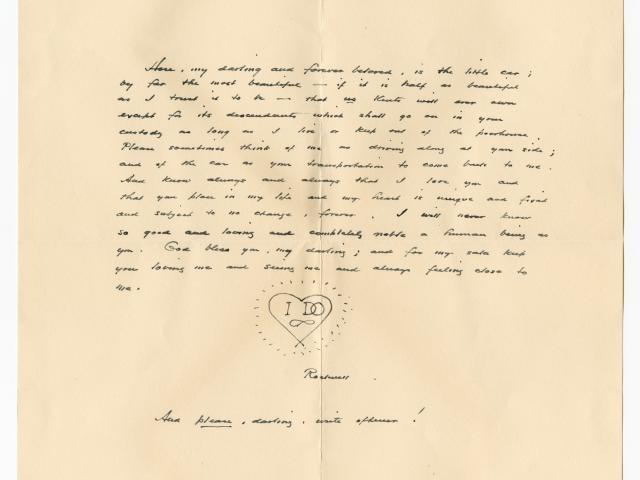 Here, my darling and forever beloved, is the little car;
by far the most beautiful — if it is half as beautiful
as I trust it to be — that us Kents will ever own
except for its descendants which shall go on in your
custody as long as I live or keep out of the poorhouse.
Please sometimes think of me as driving along at your side;
and of the car as your transportation to come back to me.
And know always and always that I love you and
that your place in my life and my heart is unique and fixed
and subject to no change, forever. I will never know
so good and loving and completely noble a human being as
you. God bless you, my darling; and for my sake keep
you loving me and seeing me and always feeling close to
me.
I DO
Rockwell.
And please, darling, write oftener!